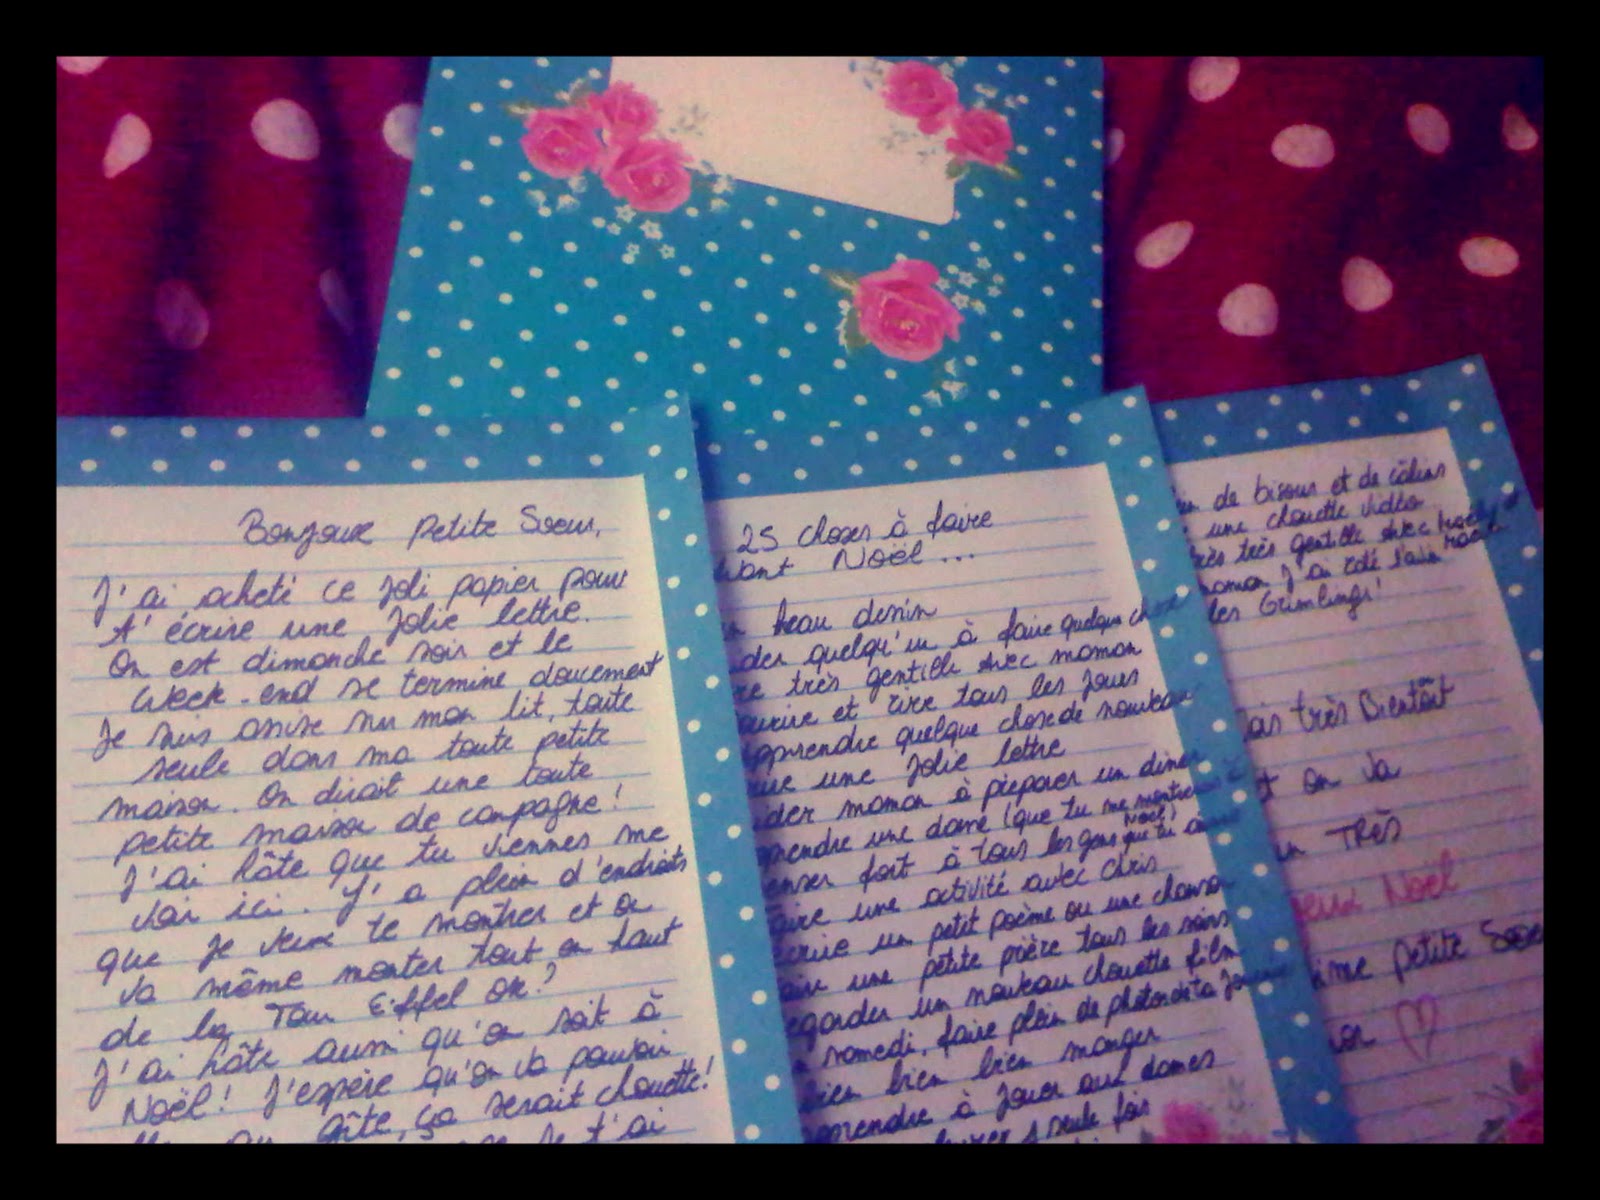 Bonjour petite Soeur,
J'ai acheté ce joli papier pour
t'écrire une jolie lettre.
On est dimanche soir et le
week-end se termine doucement
Je suis assise sur mon lit, toute
seule dans ma toute petite
maison. On dirait une toute
petite maison de campagne!
J'ai hâte que tu viennes me
voir ici. Y'a plein d'endroits
que je veux te montrer et on
va même monter tout en haut
de la Tour Eiffel ok?
J'ai hâte aussi qu'on soit à
Noël! J'espère qu'on va pouvoir
gîte, ça serait chouette!
t'ai
25 choses à faire
avant Noël...
un beau dessin
quelqu'un à faire quelque chose
très gentille avec maman
sourire et rire tous les jours
apprendre quelque chose de nouveau
une jolie lettre
aider maman à préparer un dîner
une danse (que tu me montreras à
Noël)
penser fort à tous les gens que tu aimes
faire une activité avec Chris
écrire un petit poème ou une chanson
faire une petite prière tous les soirs
regarder un nouveau chouette film
samedi, faire plein de photos de ta journée
bien bien bien manger
apprendre à jouer aux dames
1 seule fois
de bisous et de câlins
une chouette vidéo
très très gentille avec
maman
les Grimlings!
très Bientôt
et on va
un TRÈS
Joyeux Noël
petite Soeur
♡